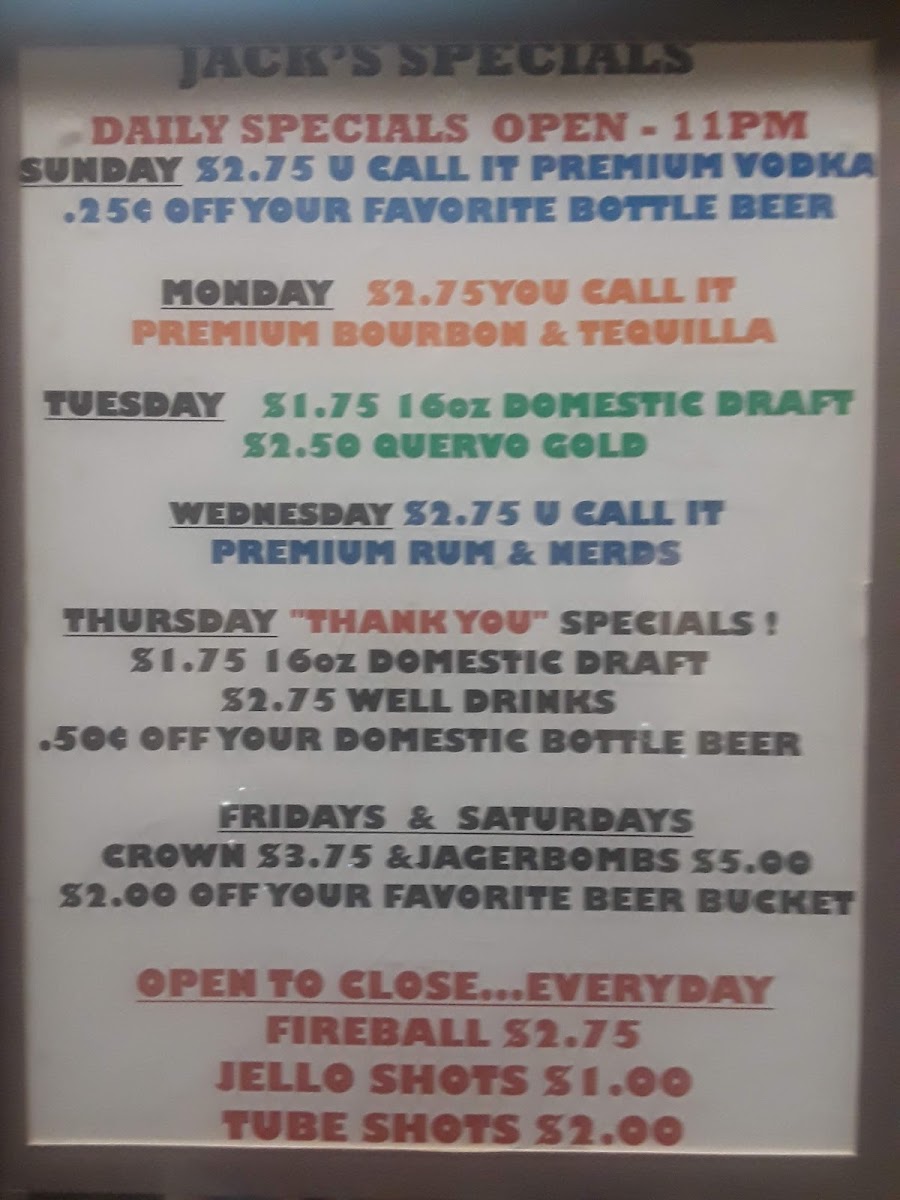 JACK'S SPECIALS
DAILY SPECIALS OPEN - 11PM
SUNDAY $2.75 U CALL IT PREMIUM VODKA
.25¢ OFF YOUR FAVORITE BOTTLE BEER
MONDAY $2.75YOU CALL IT
PREMIUM BOURBON & TEQUILLA
TUESDAY $1.75 16oz DOMESTIC DRAFT
$2.50 QUERVO GOLD
WEDNESDAY $2.75 U CALL IT
PREMIUM RUM & NERDS
THURSDAY "THANK YOU" SPECIALS !
$1.75 16oz DOMESTIC DRAFT
$2.75 WELL DRINKS
.50¢ OFF YOUR DOMESTIC BOTTLE BEER
FRIDAYS & SATURDAYS
CROWN $3.75 &JAGERBOMBS $5.00
$2.00 OFF YOUR FAVORITE BEER BUCKET
OPEN TO CLOSE...EVERYDAY
FIREBALL $2.75
JELLO SHOTS $1.00
TUBE SHOTS $2.00